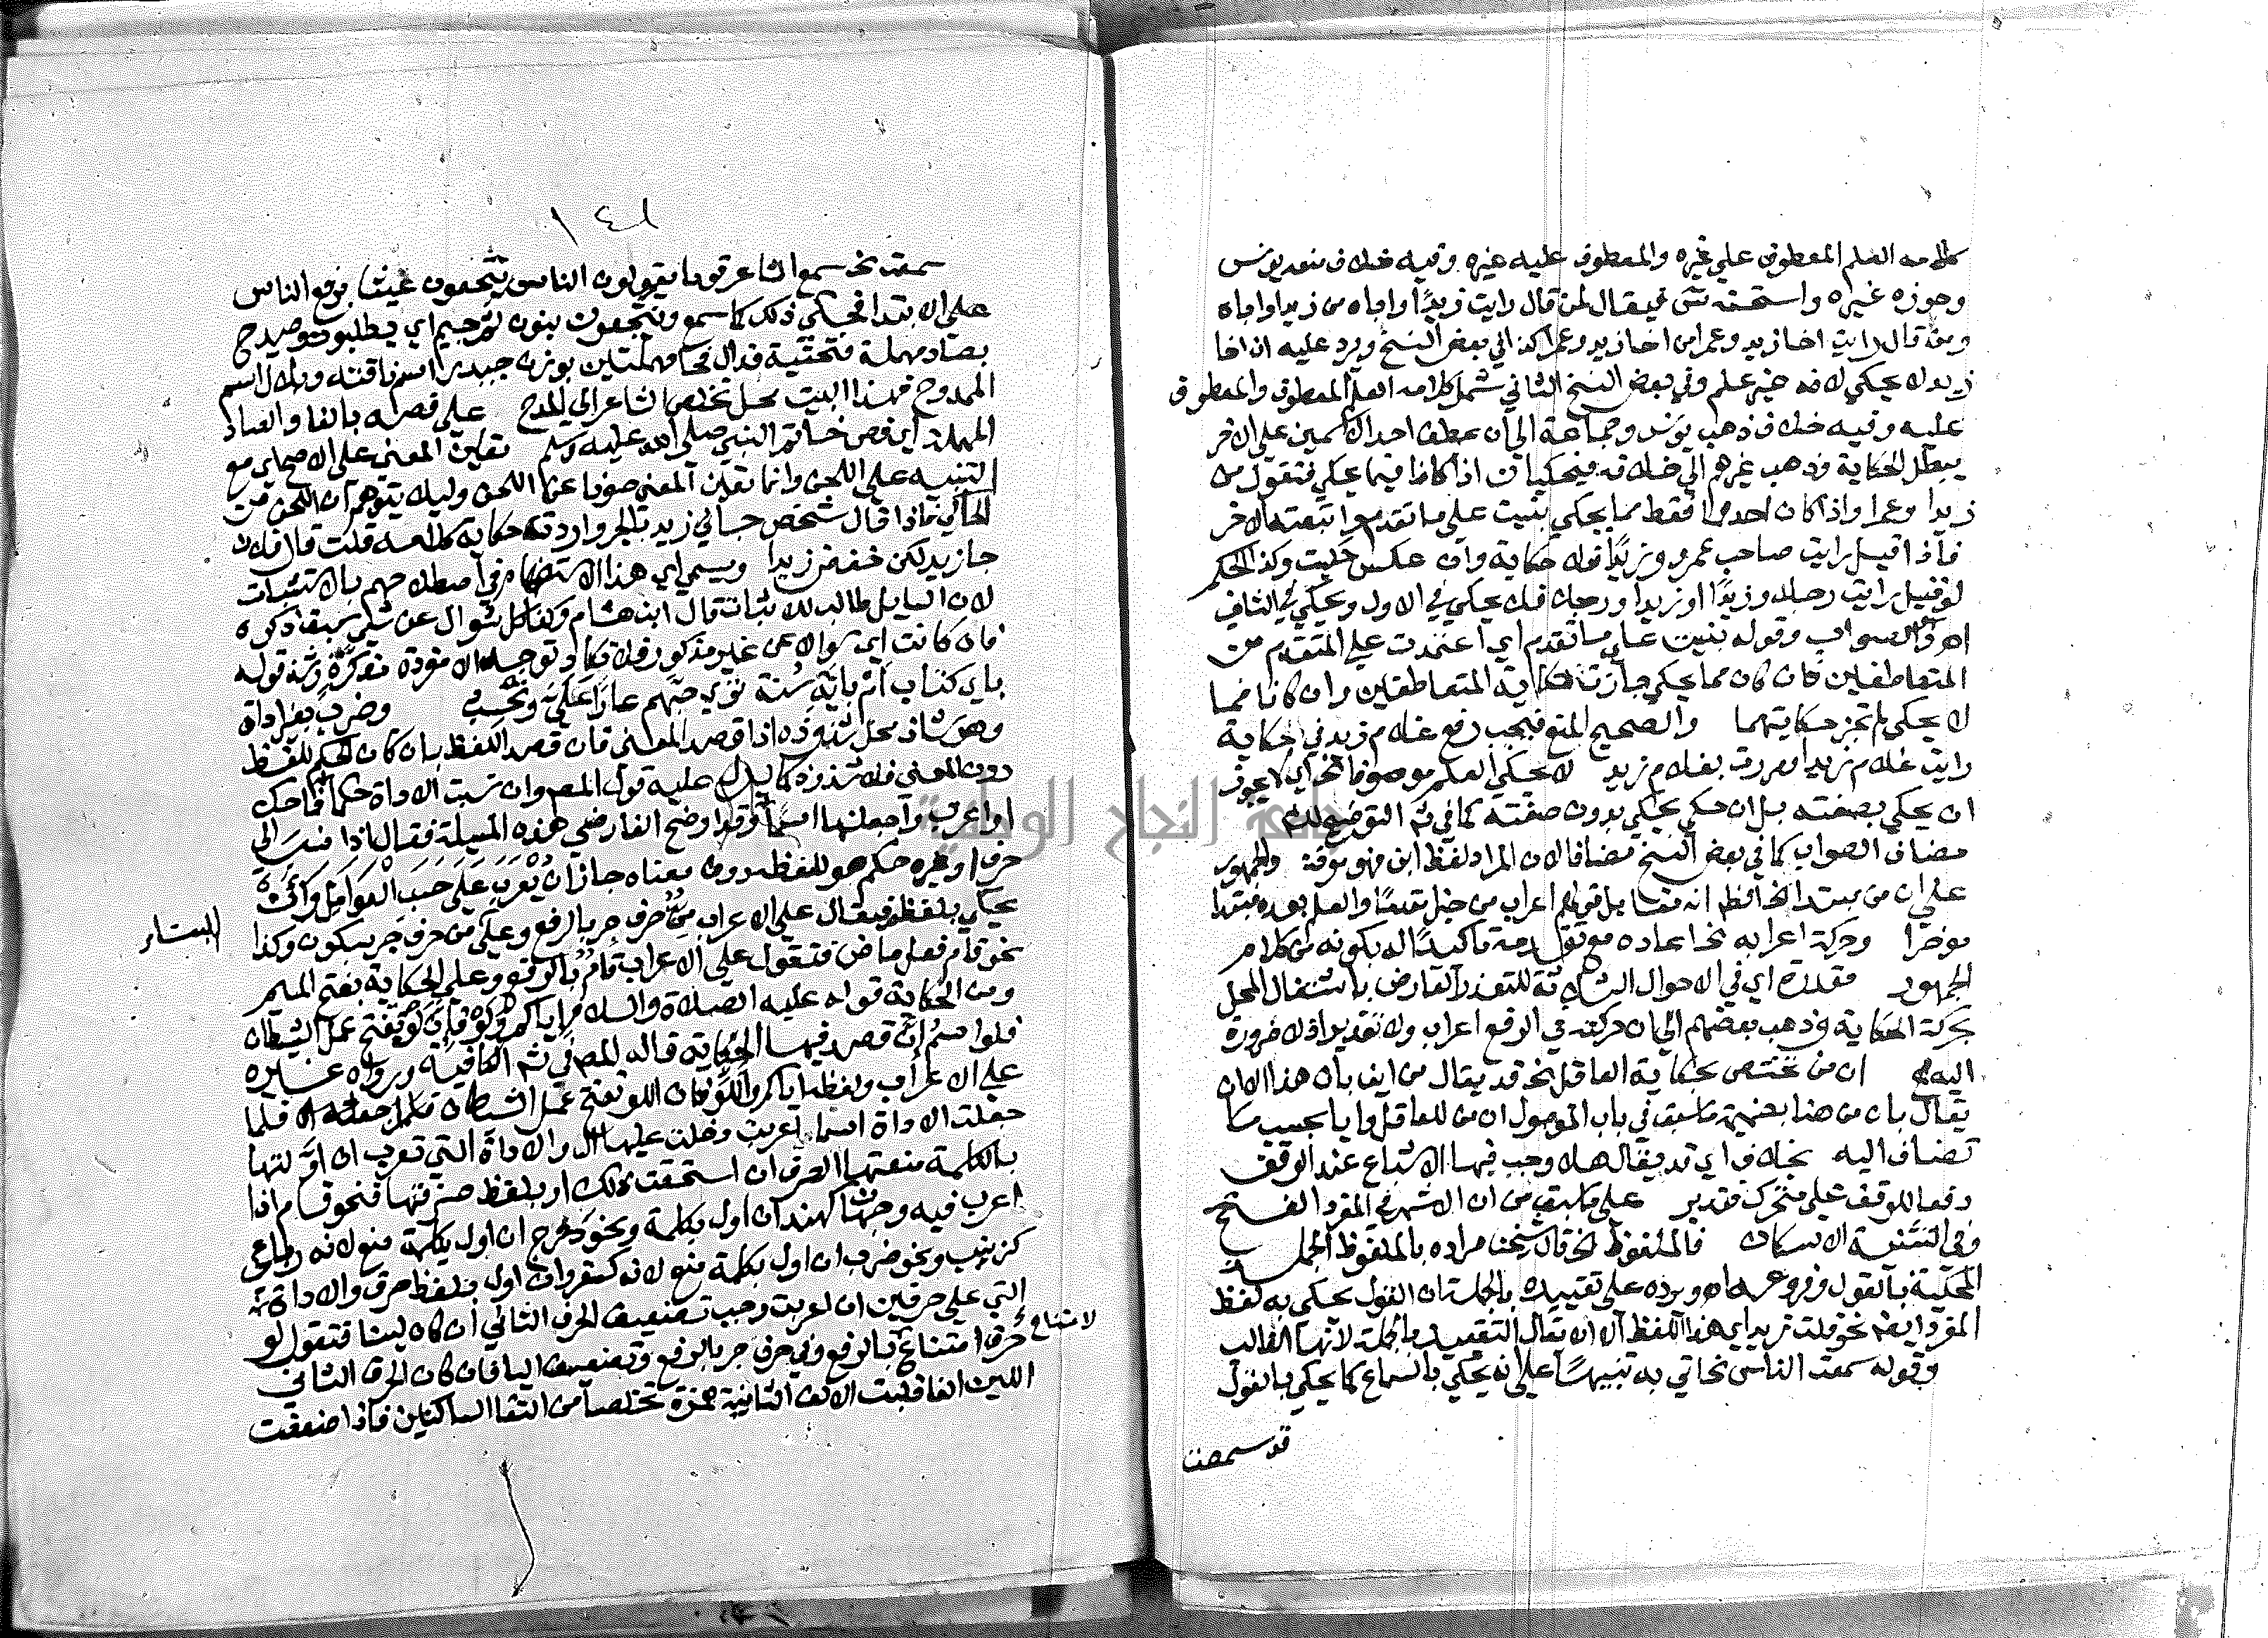 كلامه العلم المعطوف على غيره والمعطوف عليه غيره وفيه خلاف منعه يونس
وجوزه غيره واستحسنه فيقال لمن قال رايت زيدا واباه من زيدا واباه
ومن قال رايت اخا زيد وعمرا من اخا زيد وعمرا كذا في بعض النسخ ويرد عليه ان اخا
زيد لا يحكي لانه غير علم وفي بعض النسخ الثاني شمل كلامه العلم المعطوف والمعطوف
عليه وفيه خلاف ذهب يونس وجماعة الى ان عطف احد الاسمين على الاخر
يبطل الحكاية وذهب غيرهم الى خلافه فيحكيان اذا كانا مما يحكى فتقول من
زيدا وعمرا واذا كان احدهما فقط مما يحكي بنيت على ما تقدم واتبعته الاخر
فاذا قيل رايت صاحب عمرو وزيدا فلا حكاية وان عكس حكيت وكذا الحكم
لو قيل رايت رجلا وزيدا او زيدا ورجلا فلا يحكي في الاول ويحكي في الثاني
اهـ وهو الصواب وقوله بنيت على ما تقدم اي اعتمدت على المتقدم من
المتعاطفين فان كان مما يحكي جازت حكاية المتعاطفين وان كانا مما
لا يحكي لم تجز حكايتهما والصحيح المنع فيجب رفع غلام زيد في حكاية
رايت غلام زيد او مررت بغلام زيد لا يحكي العلم موصوفا الخ اي لا يجوز
ان يحكي بصفته بل ان حكي يحكي بدون صفته كما في شم التوضيح
مضاف الصواب كما في بعض النسخ مضافا لان المراد لفظ ابن فهو معرفة والجمهور
على ان من مبتدا الخ انه مقابل قولهم اعراب من خبر مقدما والعلم بعده مبتدا
موخرا وحركة اعرابه الخ اعاده مع تقدمه تاكيدا له بكونه من كلام
الجمهور مقدرة اي في الاحوال الثلاثة للتعذر العارض باشتغال المحل
بحركة الحكاية وذهب بعضهم الى ان حركته في الرفع اعراب ولا تقدير اذ لا ضرورة
اليه ان من تختص بحكاية العاقل الخ قد يقال من اين بان هذا الا ان
يقال بان من هنا بضميمة ما سبق في باب الموصول ان من للعاقل وايا بحسب ما
تضاف اليه بخلاف اي قد يقال هلا وجب فيها الاشباع عند الوقف
دفعا للوقف على متحرك فتدبر على ما سبق من ان الاشهر في المفرد الفتح
وفي التثنية الاسكان فالملفوظ الخ قال شيخنا مراده بالملفوظ الجمل
المحكية بالقول وفروعه اهـ ويرده على تقييده بالجملة ان القول يحكي به لفظ
المفرد ايضا نحو قلت زيد اي هذا اللفظ الا ان يقال التقييد بالجملة لانها الغالب
وقوله سمعت الناس الخ اتي به تنبيها على انه يحكي بالسماع كما يحكي بالقول
قو سمعت
١٤١
سمعت الخ سمع الشاعر قوما يقولون الناس ينتجعون غيثا برفع الناس
على الابتدا فحكى ذلك كما سمع وينتجعون بنون ثم جيم اي يطلبون وصيدح
بصاد مهملة فتحتية فدال فحا مهملتين بوزن حيدر اسم ناقته وبلال اسم
الممدوح فهذا البيت محل تخلص الشاعر الى المدح على فصه بالفا والصاد
المهملة اي فص خاتم النبي صلى الله عليه وسلم تعين المعنى على الاصح اي مع
التنبيه على اللحن وانما تعين المعنى صونا عن اللحن وليلا يتوهم ان اللحن من
الحاكي فاذا قال شخص جاني زيد بالجر واردت حكاية كلامه قلت قال فلان
جا زيد لكن خفض زيدا ويسمى اي هذا الاستفهام في اصطلاحهم بالاستثبات
لان السايل طالب للاثبات قال ابن هشام وكذا كل سوال عن شي سبق ذكره
فان كانت اي سوالا عن غير مذكور فلا تكاد توجد الا مفردة مذكرة وشذ قوله
باي كتاب ام باية سنة ترى حبهم عارا علي وتحسب وضرب بغير اداة
وهو شاذ محل شذوذه اذا قصد المعنى فان قصد اللفظ بان كان الحكم للفظ
دون المعنى فلا شذوذ كما يدل عليه قول المصم وان نسبت الاداة حكما فاحك
او اعرب واجعلنها اسما وقد اوضح الفارضي هذه المسيلة فقال اذا نسب الى
حرف او غيره حكم هو للفظه دون معناه جاز ان يعرب على حسب العوامل وان
يحكي بلفظه فيقال على الاعراب من حرف جر بالرفع وعكي من حرف جر بسكون وكذا البنا
نحو قام فعل ماض فتقول على الاعراب قام بالرفع وعلى الحكاية بفتح الميم
ومن الحكاية قوله عليه الصلاة والسلام اياكم ولو فان لو تفتح عمل الشيطان
فلو اسم ان قصد فيها الحكاية قاله المص في شم الكافية ورواه غيره
على الاعراب ولفظه اياكم واللو فان اللو تفتح عمل الشيطان فلما
جعلت الاداة اسما اعربت ودخلت عليها ال والاداة التي تعرب ان اولتها
بالكلمة منعتها الصرف ان استحقت ذلك او بلفظ صرفتها فنحو قام اذا
اعرب فيه وجهان كهند ان اول بكلمة ونحو دحرج ان اول بكلمة منع لانه رباعي
كزينب ونحو ضرب ان اول بكلمة منع لانه كسقر وان اول بلفظ صرف والاداة
التي على حرفين ان اعربت وجب تضعيف الحرف الثاني ان كان لينا فتقول لو
حرف امتناع لامتناع بالرفع وفي حرف جر بالرفع وتضعيف اليا فان كان الحرف الثاني
اللين الفا قلبت الالف الثانية همزة تخلصا من التقا الساكنين فاذا ضعفت